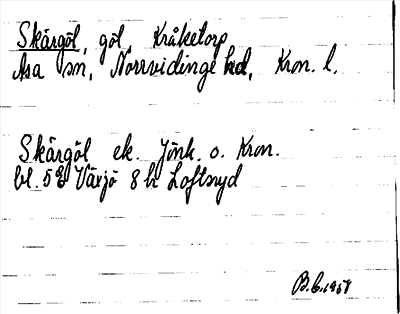 Skärgöl, göl, Kråketorp
Asa sn, Norrvidinge hd, Kron. l.
Skärgöl ek. Jönk. o. Kron.
bl. 5 Växjö 8 h Loftsryd
B.C. 1958